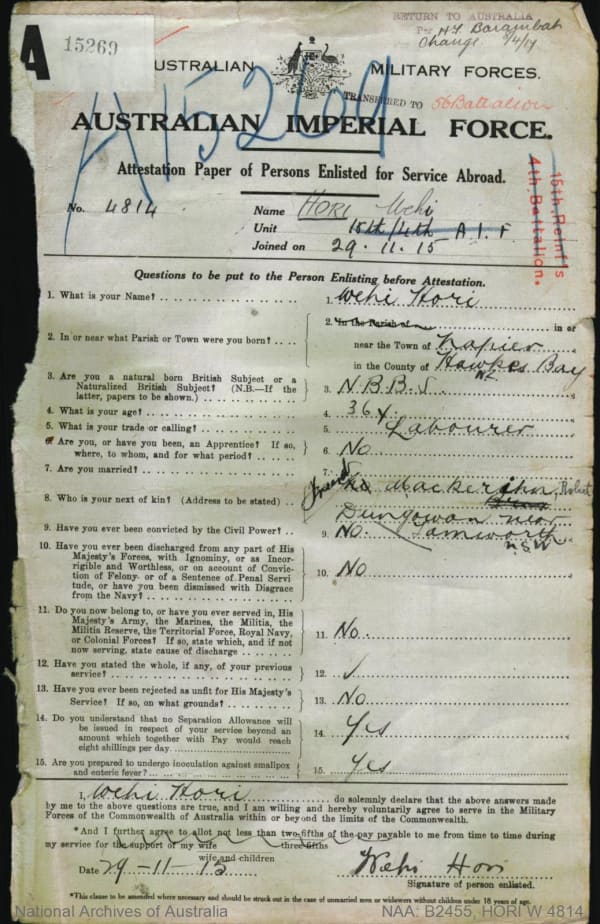 RETURN TO AUSTRALIA
Per
Change
A
15269
AUSTRALIAN MILITARY FORCES.
A15269
TRANSFERRED TO 56 Battalion
AUSTRALIAN IMPERIAL FORCE.
Attestation Paper of Persons Enlisted for Service Abroad.
15th Reinf's
4th Battalion.
No. 4814
Name HORI Wehi
Unit 15th/4th A.I.F
Joined on 29.11.15
Questions to be put to the Person Enlisting before Attestation.
1. What is your Name? 1. Wehi Hori
2. In or near what Parish or Town were you born? 2. In the Parish of in or
near the Town of Napier
in the County of Hawkes Bay
NZ
3. Are you a natural born British Subject or a
Naturalized British Subject? (N.B.—If the
latter, papers to be shown.) 3. N.B.B.S.
4. What is your age? 4. 36
5. What is your trade or calling? 5. Labourer
6. Are you, or have you been, an Apprentice? If so,
where, to whom, and for what period? 6. No
7. Are you married? 7.
8. Who is your next of kin? (Address to be stated) Friend Robert
Dungowan near
Tamworth
NSW
9. Have you ever been convicted by the Civil Power? 9. No.
10. Have you ever been discharged from any part of His
Majesty's Forces, with Ignominy, or as Incor-
rigible and Worthless, or on account of Convic-
tion of Felony, or of a Sentence of Penal Servi
tude, or have you been dismissed with Disgrace
from the Navy? 10. No
11. Do you now belong to, or have you ever served in, His
Majesty's Army, the Marines, the Militia, the
Militia Reserve, the Territorial Force, Royal Navy,
or Colonial Forces? If so, state which, and if not
now serving, state cause of discharge 11. No.
12. Have you stated the whole, if any, of your previous
service? 12. ✓
13. Have you ever been rejected as unfit for His Majesty's
Service? If so, on what grounds? 13. No
14. Do you understand that no Separation Allowance will
be issued in respect of your service beyond an
amount which together with Pay would reach
eight shillings per day. 14. Yes
15. Are you prepared to undergo inoculation against smallpox
and enteric fever? 15. Yes
I, Wehi Hori do solemnly declare that the above answers made
by me to the above questions are true, and I am willing and hereby voluntarily agree to serve in the Military
Forces of the Commonwealth of Australia within or beyond the limits of the Commonwealth.
*And I further agree to allot not less than two-fifths of the pay payable to me from time to time during
three-fifths
my service for the support of my wife
wife and children
Date 29-11-15 Wehi Hori
Signature of person enlisted.
*This clause to be amended where necessary and should be struck out in the case of unmarried men or widowers without children under 18 years of age.
National Archives of Australia NAA: B2455, HORI W 4814